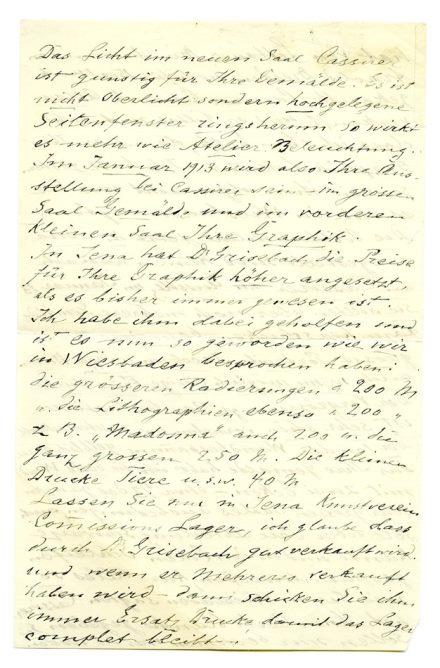 Das Licht im neuen Saal Cassirer
ist günstig für Ihre Gemälde. Es ist
nicht Oberlicht sondern hochgelegene
Seitenfenster ringsherum so wirkt
es mehr wie Atelier Beleuchtung.
Im Januar 1913 wird also Ihre Aus-
stellung bei Cassirer sein im grossen
Saal Gemälde und im vorderen
kleinen Saal Ihre Graphik.
In Jena hat Dr Grisebach die Preise
für Ihre Graphik höher angesetzt,
als es bisher immer gewesen ist.
Ich habe ihm dabei geholfen und
ist es nun so geworden wie wir
in Wiesbaden besprochen haben:
die grösseren Radierungen à 200 M
u. die Lithographien ebenso à 200 "
z B. „Madonna" auch 200 u. die
ganz grossen 250 M. Die kleinen
Drucke Tiere u.s.w. 40 M
Lassen Sie nur in Jena Kunstverein
Comissions Lager, ich glaube dass
durch Dr Grisebach gut verkauft wird.
und wenn er Mehreres verkauft
haben wird – dann schicken Sie ihm
immer Ersatz Drucke damit das Lager
complet bleibt.